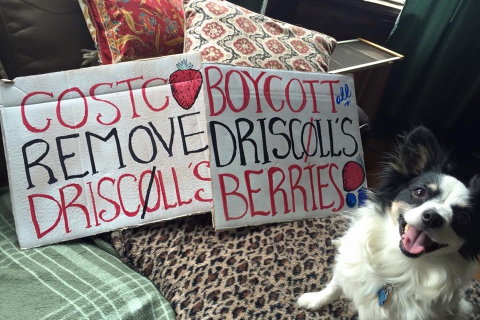 COSTCO
REMOVE
DRISCØLL'S
BOYCOTT all
DRISCØLL'S
BERRIES!